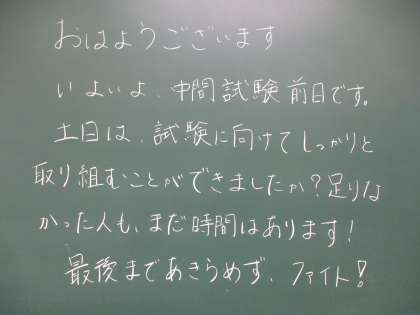 おはようございます
いよいよ、中間試験前日です。
土日は、試験に向けてしっかりと
取り組むことができましたか？足りな
かった人も、まだ時間はあります！
最後まであきらめず、ファイト！